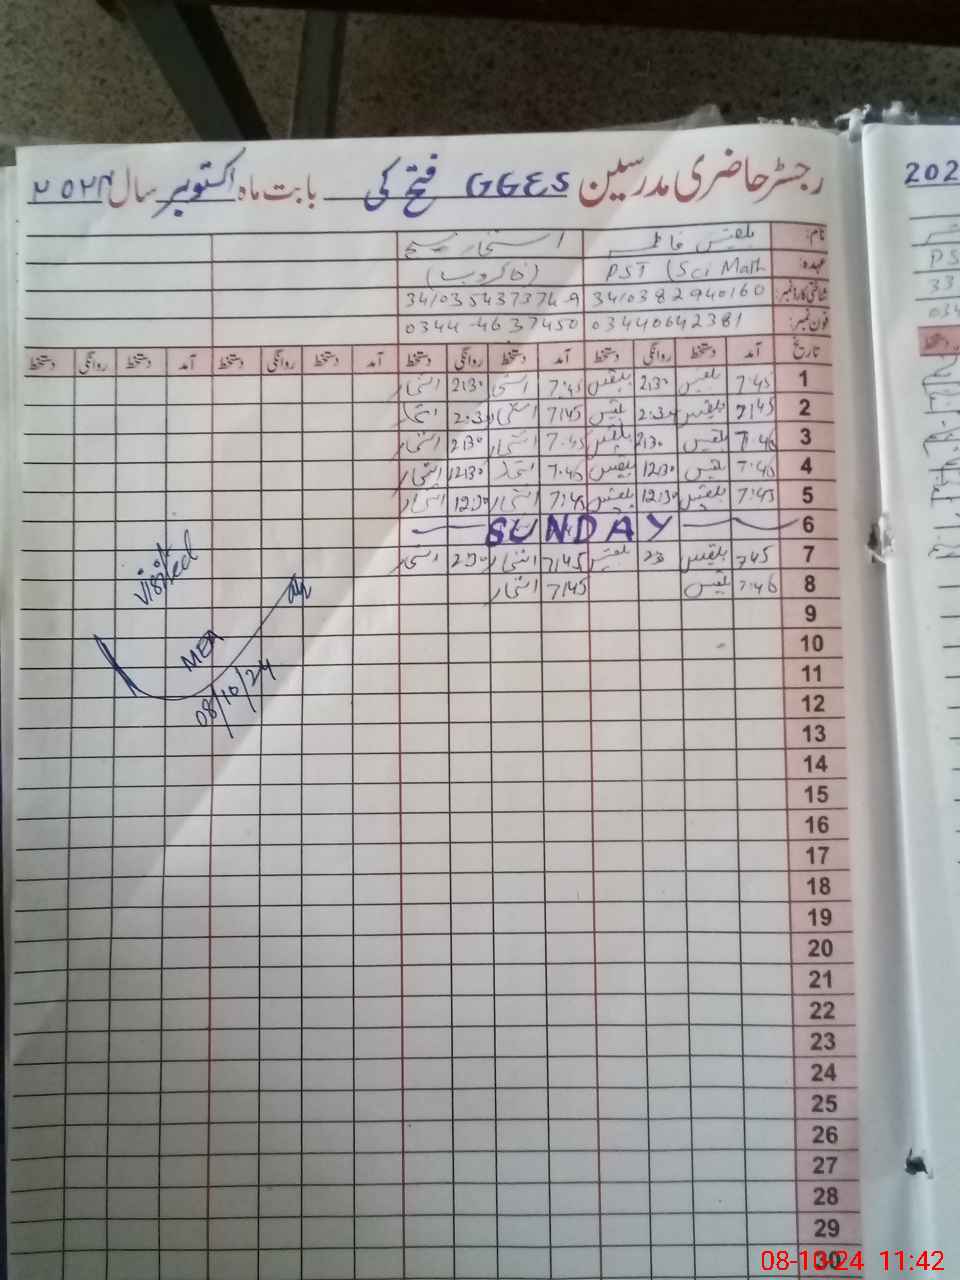 رجسٹر حاضری مدرسین GGES فتح کی بابت ماہ اکتوبر سال ۲۰۲۴
نام: بلقیس فاطمہ
عہدہ: PST (Sci Math (خاکروب)
شناختی کارڈ نمبر: 341038 2940160
فون نمبر: 03440642381 0344-4637450
تاریخ آمد دستخط روانگی دستخط آمد دستخط روانگی دستخط آمد دستخط روانگی دستخط آمد دستخط روانگی دستخط
1 7:45 بلقیس 2:30 بلقیس 7:45 2:30
2 7:45 بلقیس 2:30 بلقیس 7:45 2:30
3 7:46 بلقیس 2:30 بلقیس 7:45 2:30
4 7:46 بلقیس 12:30 بلقیس 7:45 12:30
5 7:45 بلقیس 12:30 بلقیس 7:45 12:30
6 SUNDAY
7 7:45 بلقیس بلقیس 7:45 2:30
8 7:46 بلقیس 7:45
9
10
11
12
13
14
15
16
17
18
19
20
21
22
23
24
25
26
27
28
29
30
visited
MEA
08/10/24
202
PS
33
034
دستخط
08-10-24 11:42